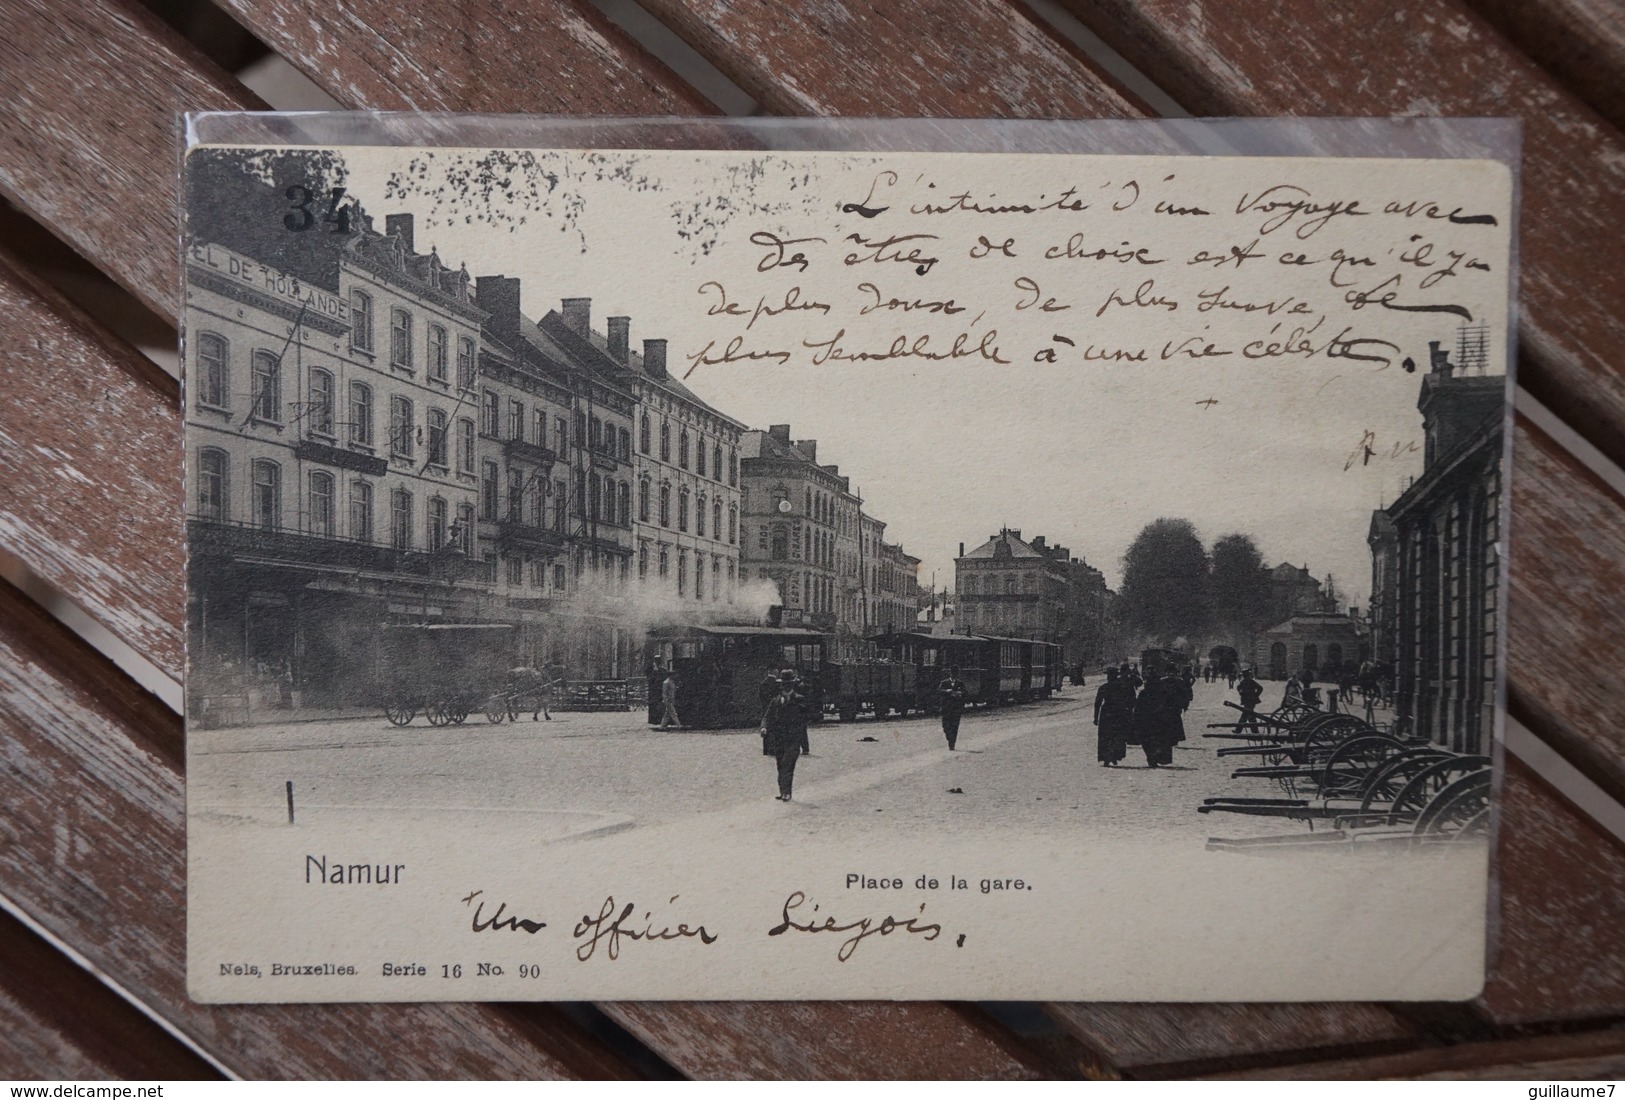 34
EL DE HOLLANDE
L'intimité d'un voyage avec
des êtres de choix est ce qu'il y a
de plus doux, de plus suave, de
plus semblable à une vie céleste.
Namur
Place de la gare.
Un officier Liégois.
Nels, Bruxelles. Serie 16 No. 90
www.delcampe.net
guillaume7